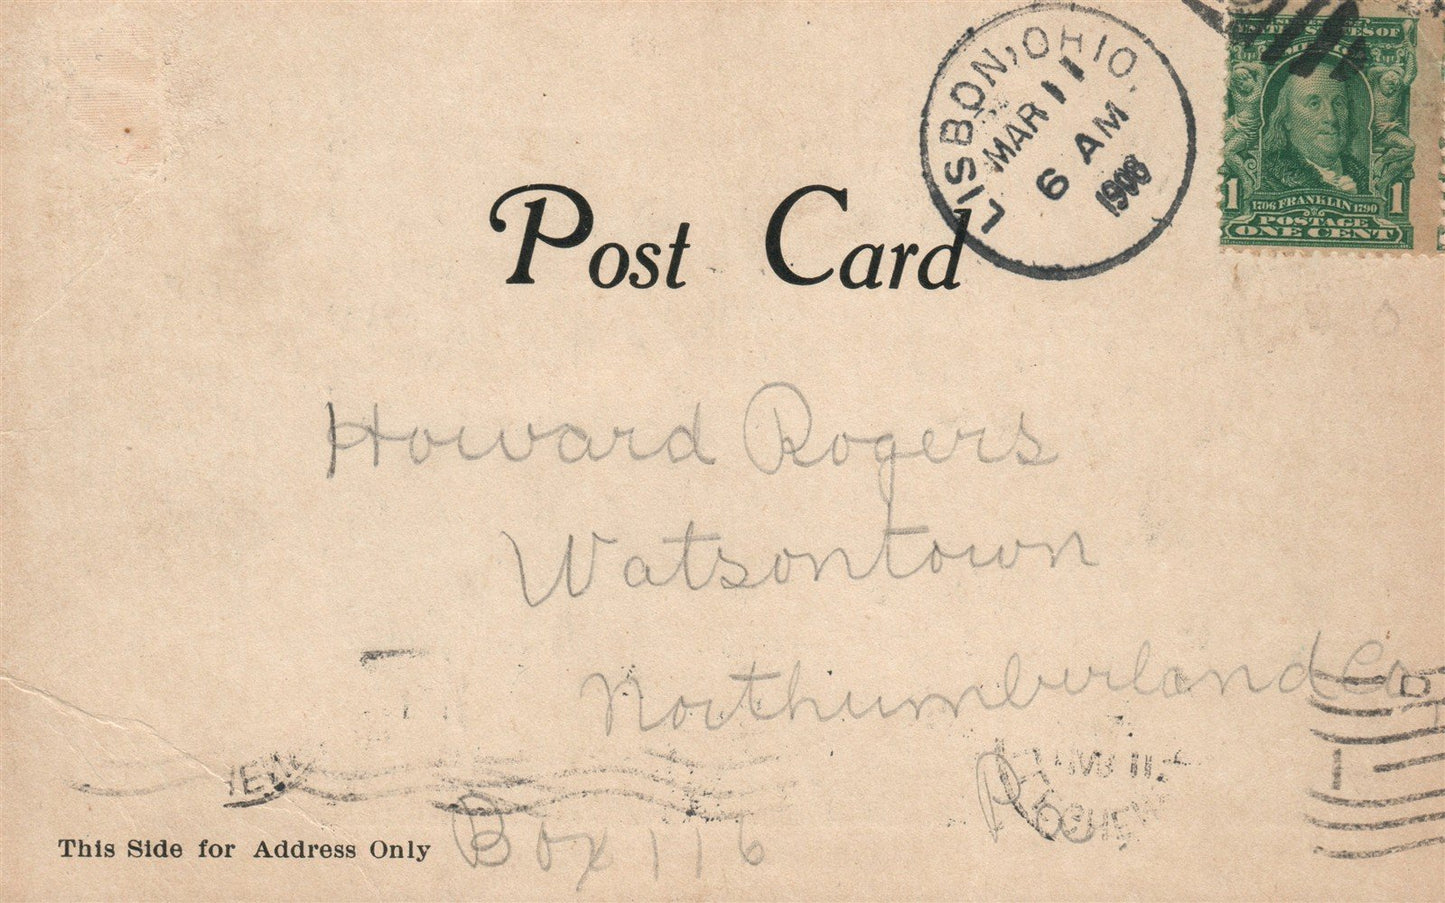 LISBON, OHIO.
MAR 11
6 AM
1908
1706 FRANKLIN 1790
1 1
POSTAGE
ONE CENT
Post Card
Howard Rogers
Watsontown
Northumberland Co
Pa
Box 116
This Side for Address Only